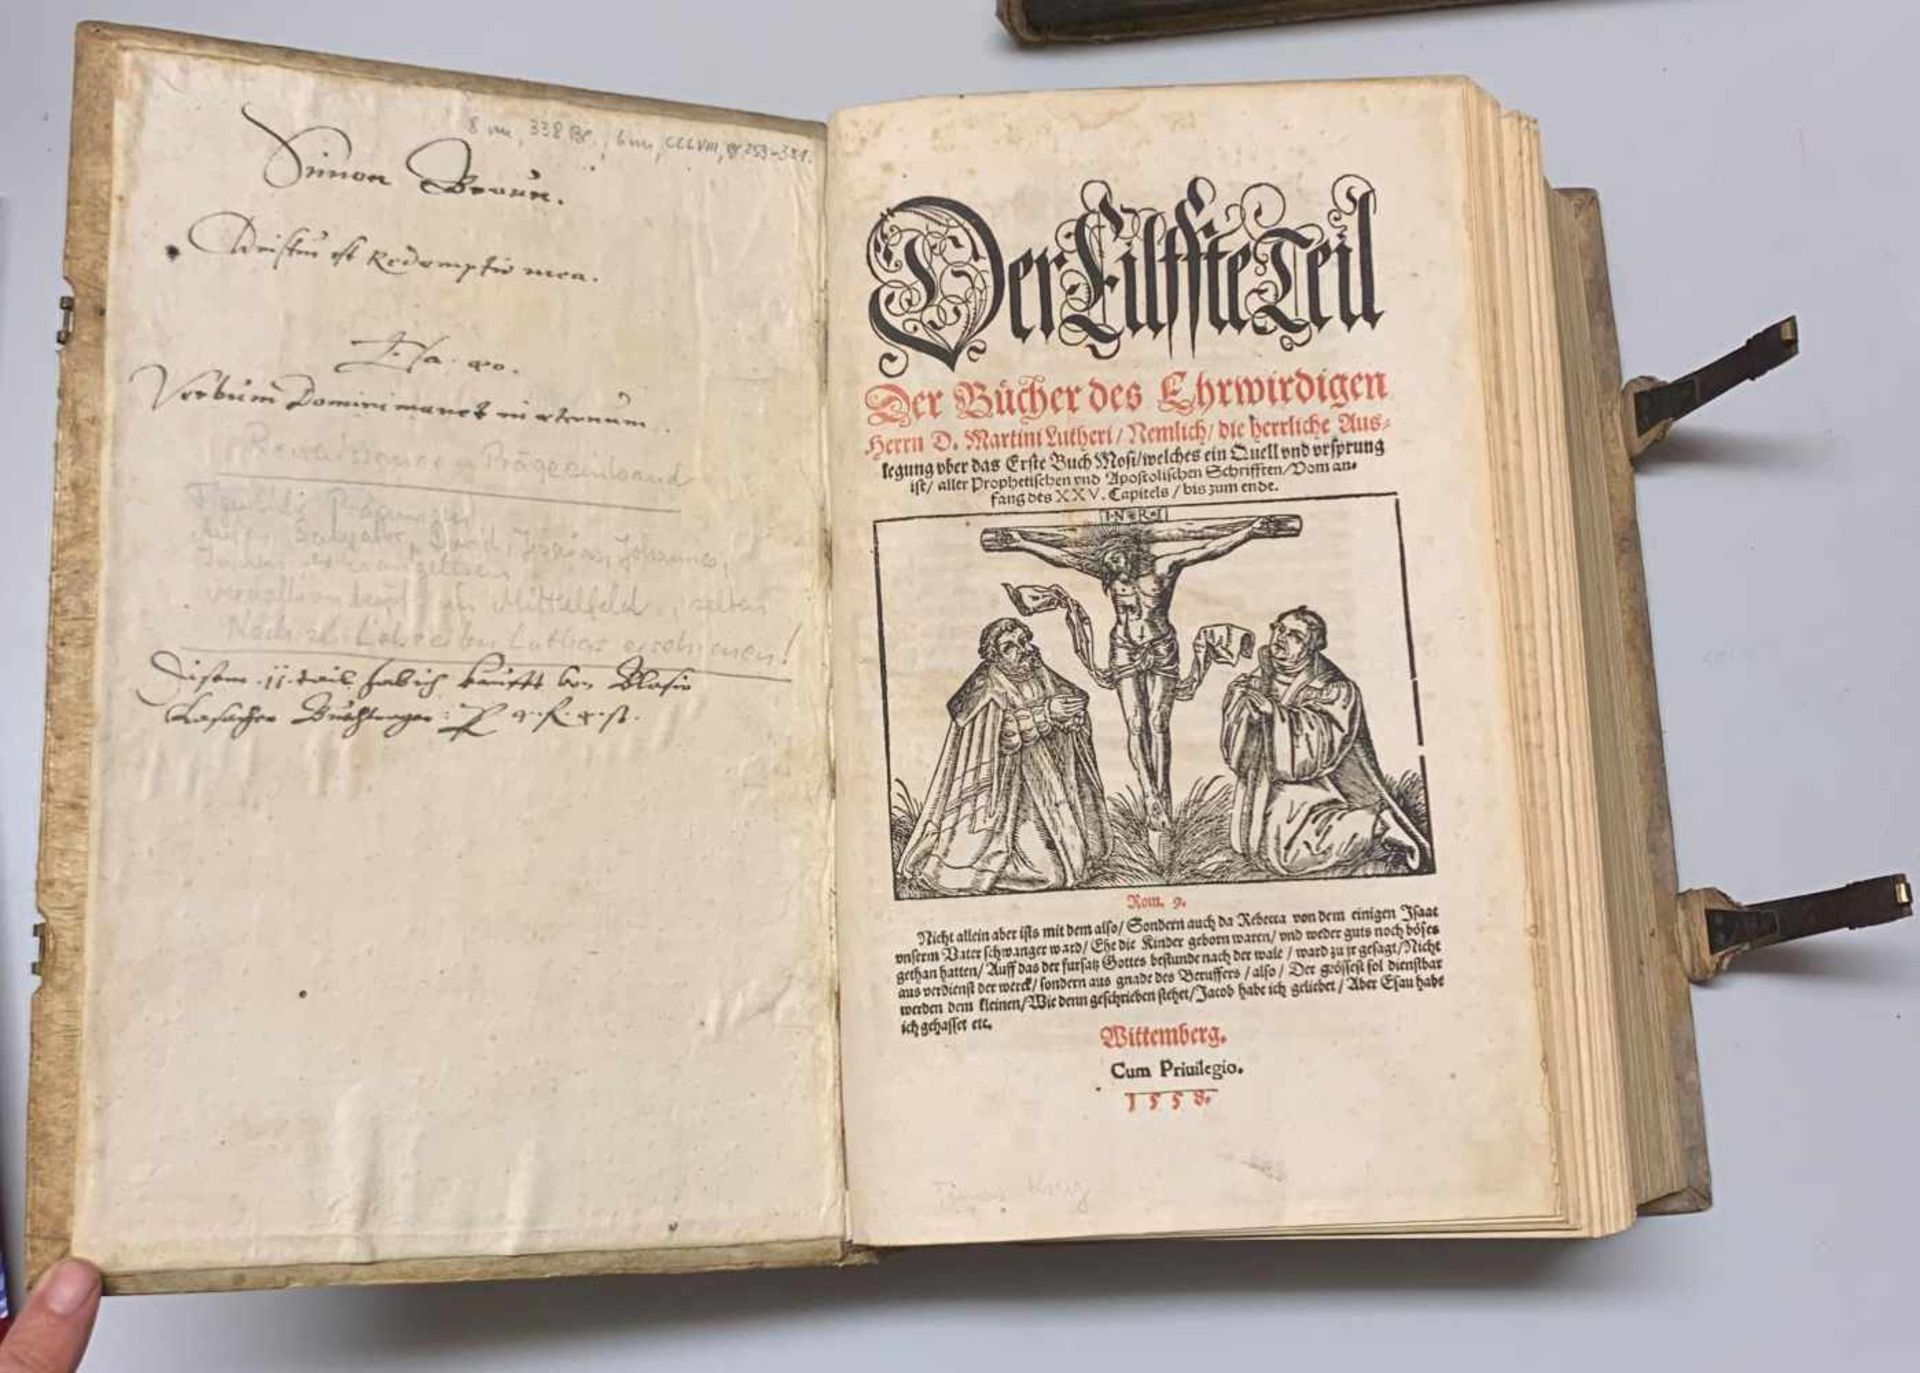 8 nn, 338 Bl., 6 nn, CCLVIII,
Simon Braun.
Christus est Redemptio mea.
Esa. 40.
Verbum Domini manet in æternum.
Renaissance Prägeeinband
David, Johannes,
Mittelfeld, selten
Luther erschienen!
Disen 11. teil hab ich kaufft von Blasio
Der Eilffte Teil
Der Bücher des Ehrwirdigen
Herrn D. Martini Lutheri / Nemlich / die herrliche Aus-
legung vber das Erste Buch Mosi / welches ein Quell vnd vrsprung
ist / aller Prophetischen vnd Apostolischen Schrifften / Vom an-
fang des XXV. Capitels / bis zum ende.
I·N·R·I
Rom. 9.
Nicht allein aber ists mit dem also / Sondern auch da Rebecca von dem einigen Isaac
vnserm Vater schwanger ward / Ehe die Kinder geborn waren / vnd weder guts noch böses
gethan hatten / Auff das der fursatz Gottes bestunde nach der wale / ward zu jr gesagt / Nicht
aus verdienst der werck / sondern aus gnade des Beruffers / also / Der grössest sol dienstbar
werden dem kleinen / Wie denn geschrieben stehet / Jacob habe ich geliebet / Aber Esau habe
ich gehasset etc.
Wittemberg.
Cum Priuilegio.
1558.